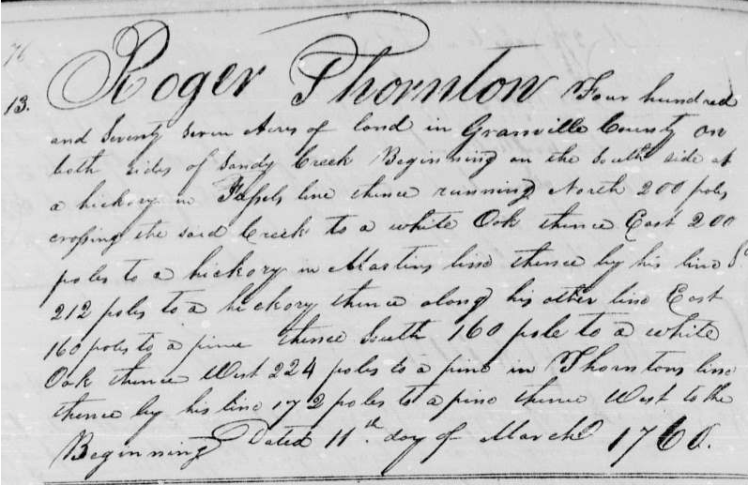 76
13. Roger Thornton Four hundred
and Seventy Seven Acres of land in Granville County on
both sides of Sandy Creek Beginning on the South side at
a hickory in line thence running North 200 poles
crossing the said Creek to a white Oak thence East 200
poles to a hickory in Martins line thence by his line So
212 poles to a hickory thence along his other line East
160 poles to a pine thence South 160 pole to a white
Oak thence West 224 poles to a pine in Thorntons line
thence by his line 172 poles to a pine thence West to the
Beginning Dated 11th. day of March 1760.